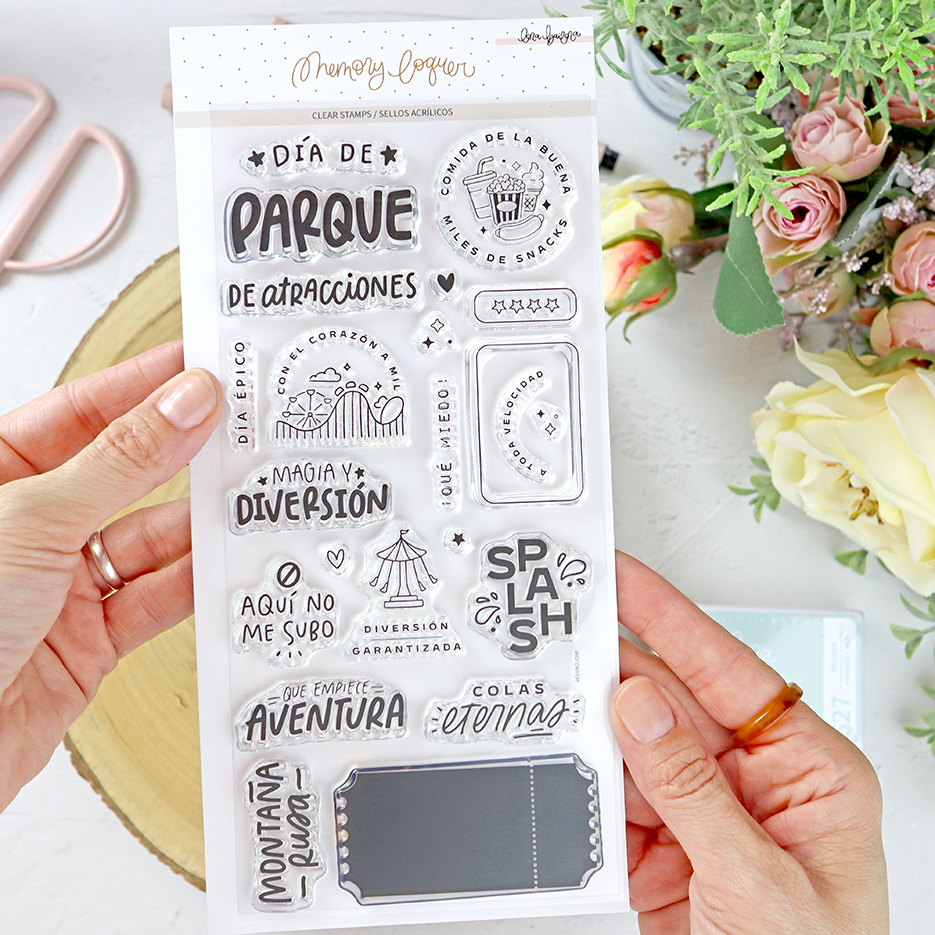 Memory loquer
CLEAR STAMPS / SELLOS ACRÍLICOS
DÍA DE
PARQUE
DE atRACCIONES
COMIDA DE LA BUENA
MILES DE SNACKS
DÍA ÉPICO
CON EL CORAZÓN A MIL
¡QUÉ MIEDO!
A TODA VELOCIDAD
MAGIA Y
DIVERSIÓN
AQUÍ NO
ME SUBO
DIVERSIÓN
GARANTIZADA
SPLASH
QUE EMPIECE
AVENTURA
COLAS
eternas
MONTAÑA
Rusa